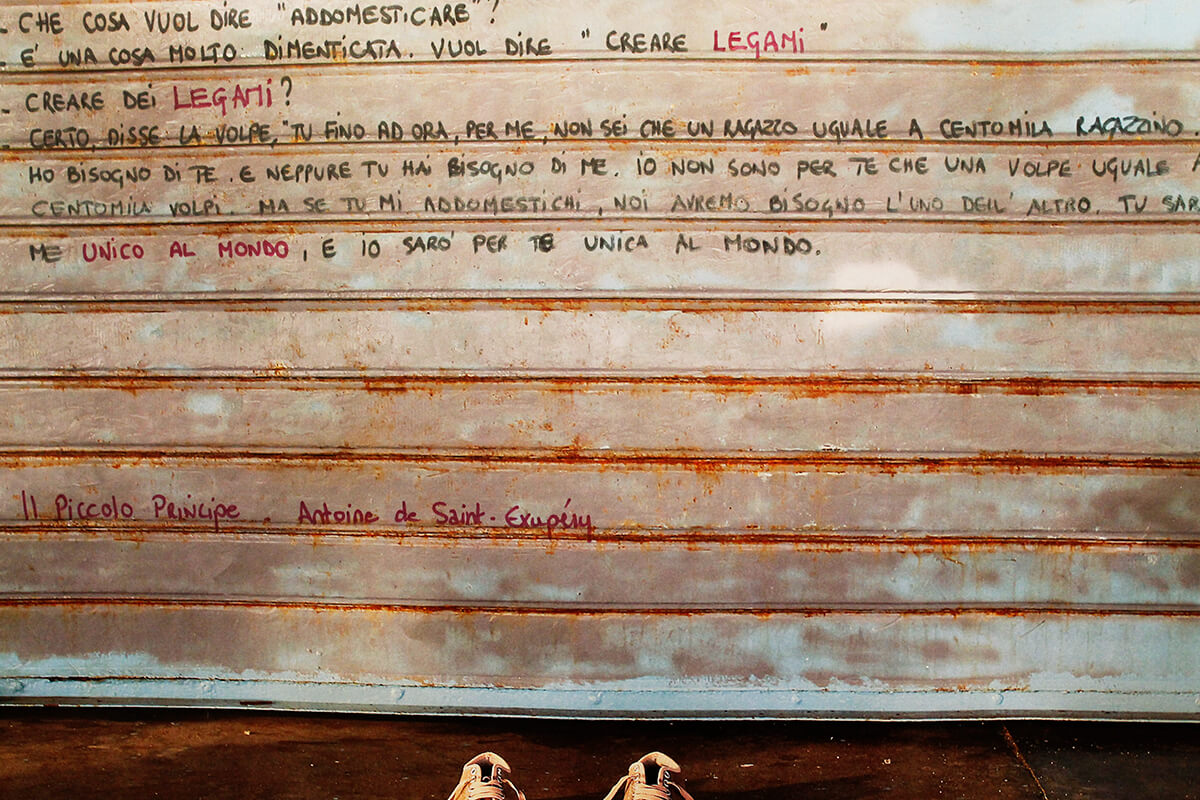 - CHE COSA VUOL DIRE "ADDOMESTICARE"?
- E' UNA COSA MOLTO DIMENTICATA. VUOL DIRE "CREARE LEGAMI"
- CREARE DEI LEGAMI?
- CERTO, DISSE LA VOLPE, "TU FINO AD ORA, PER ME, NON SEI CHE UN RAGAZZO UGUALE A CENTOMILA RAGAZZINO
HO BISOGNO DI TE. E NEPPURE TU HAI BISOGNO DI ME. IO NON SONO PER TE CHE UNA VOLPE UGUALE A
CENTOMILA VOLPI. MA SE TU MI ADDOMESTICHI, NOI AVREMO BISOGNO L'UNO DELL' ALTRO. TU SAR
ME UNICO AL MONDO, E IO SARO' PER TE UNICA AL MONDO.
Il Piccolo Principe. Antoine de Saint-Exupéry